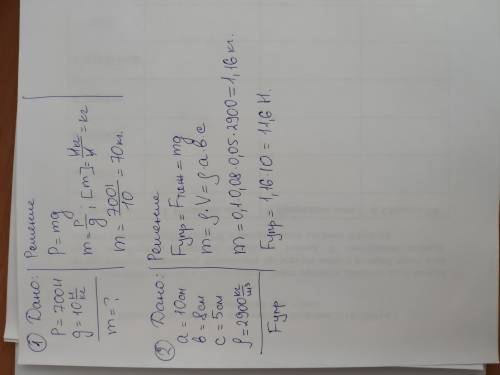 ① Дано:
P = 700 Н
g = 10 Н/кг
m = ?
Решение
P = mg
m = P/g ; [m] = Н·кг/Н = кг
m = 700/10 = 70 кг.
② Дано:
a = 10 см
в = 8 см
c = 5 см
ρ = 2900 кг/м³
Fупр
Решение
Fупр = Fтяж = mg
m = ρ·V = ρ a·в c
m = 0,1·0,08·0,05·2900 = 1,16 кг.
Fупр = 1,16·10 = 11,6 Н.